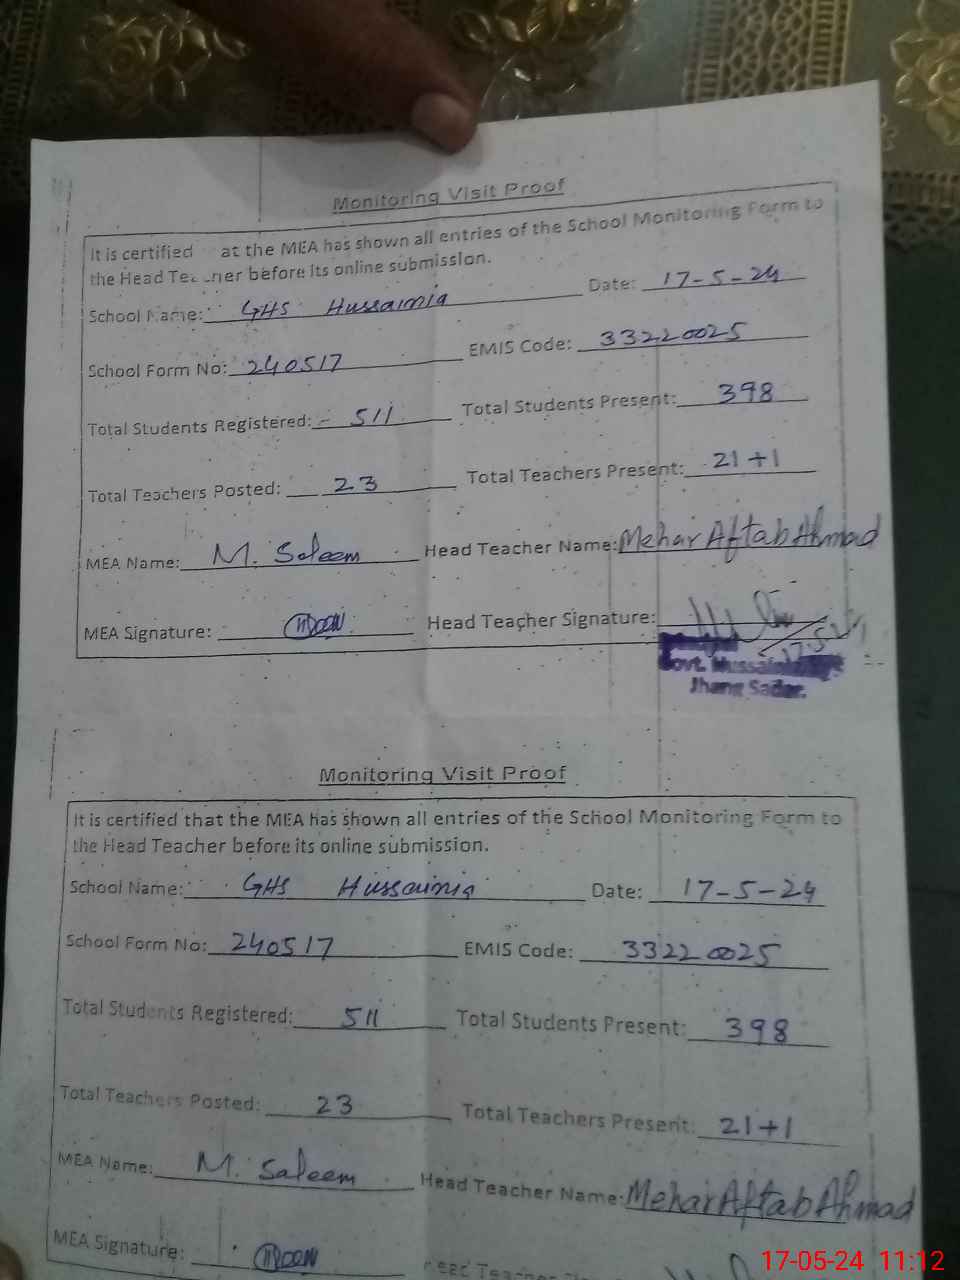 Monitoring Visit Proof
It is certified at the MEA has shown all entries of the School Monitoring Form to
the Head Teacher before its online submission.
School Name: GHS Hussainia Date: 17-5-24
School Form No: 240517 EMIS Code: 33220025
Total Students Registered: 511 Total Students Present: 398
Total Teachers Posted: 23 Total Teachers Present: 21+1
MEA Name: M. Saleem Head Teacher Name: Mehar Aftab Ahmad
MEA Signature: Head Teacher Signature:
17-5-24
Govt.
Jhang Sadar.
Monitoring Visit Proof
It is certified that the MEA has shown all entries of the School Monitoring Form to
the Head Teacher before its online submission.
School Name: GHS Hussainia Date: 17-5-24
School Form No: 240517 EMIS Code: 33220025
Total Students Registered: 511 Total Students Present: 398
Total Teachers Posted: 23 Total Teachers Present: 21+1
MEA Name: M. Saleem Head Teacher Name: Mehar Aftab Ahmad
MEA Signature: Head
17-05-24 11:12